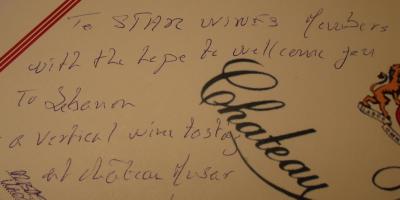 To STAR WINES Members
with the hope to wellcome you
To Lebanon
a vertical wine tasting
at château Musar
Chateau